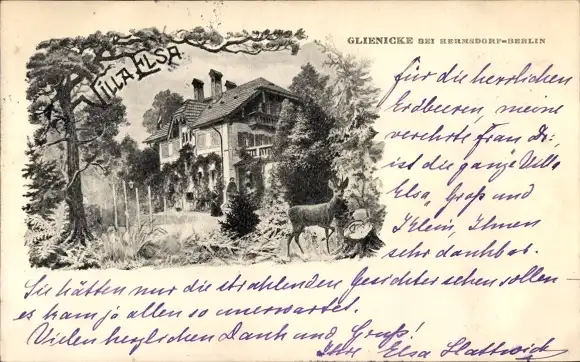 VILLA ELSA
GLIENICKE BEI HERMSDORF=BERLIN
für die herrlichen
Erdbeeren, meine
verehrte Frau Dr:,
ist die ganze Villa
Elsa, Groß und
Klein, Ihnen
sehr dankbar.
Sie hätten nur die strahlenden Gesichter sehen sollen –
es kam ja allen so unerwartet.
Vielen herzlichen Dank und Gruß!
Ihre Elsa